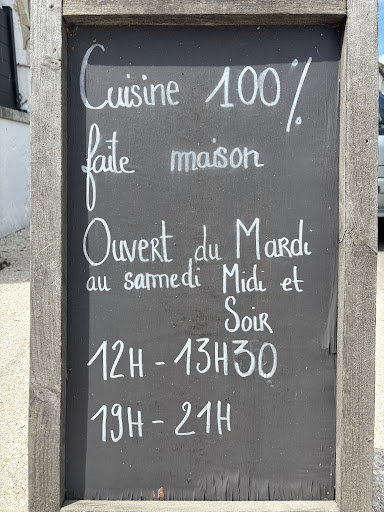 Cuisine 100%
faite maison
Ouvert du Mardi
au samedi Midi et
Soir
12H - 13H30
19H - 21H